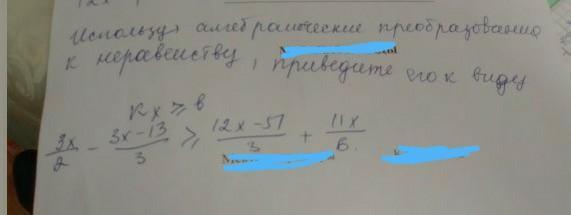 Используя алгебраические преобразования
к неравенству, приведите его к виду
кх ≥ в
3х/2 - 3х-13/3 ≥ 12х-57/3 + 11х/6.